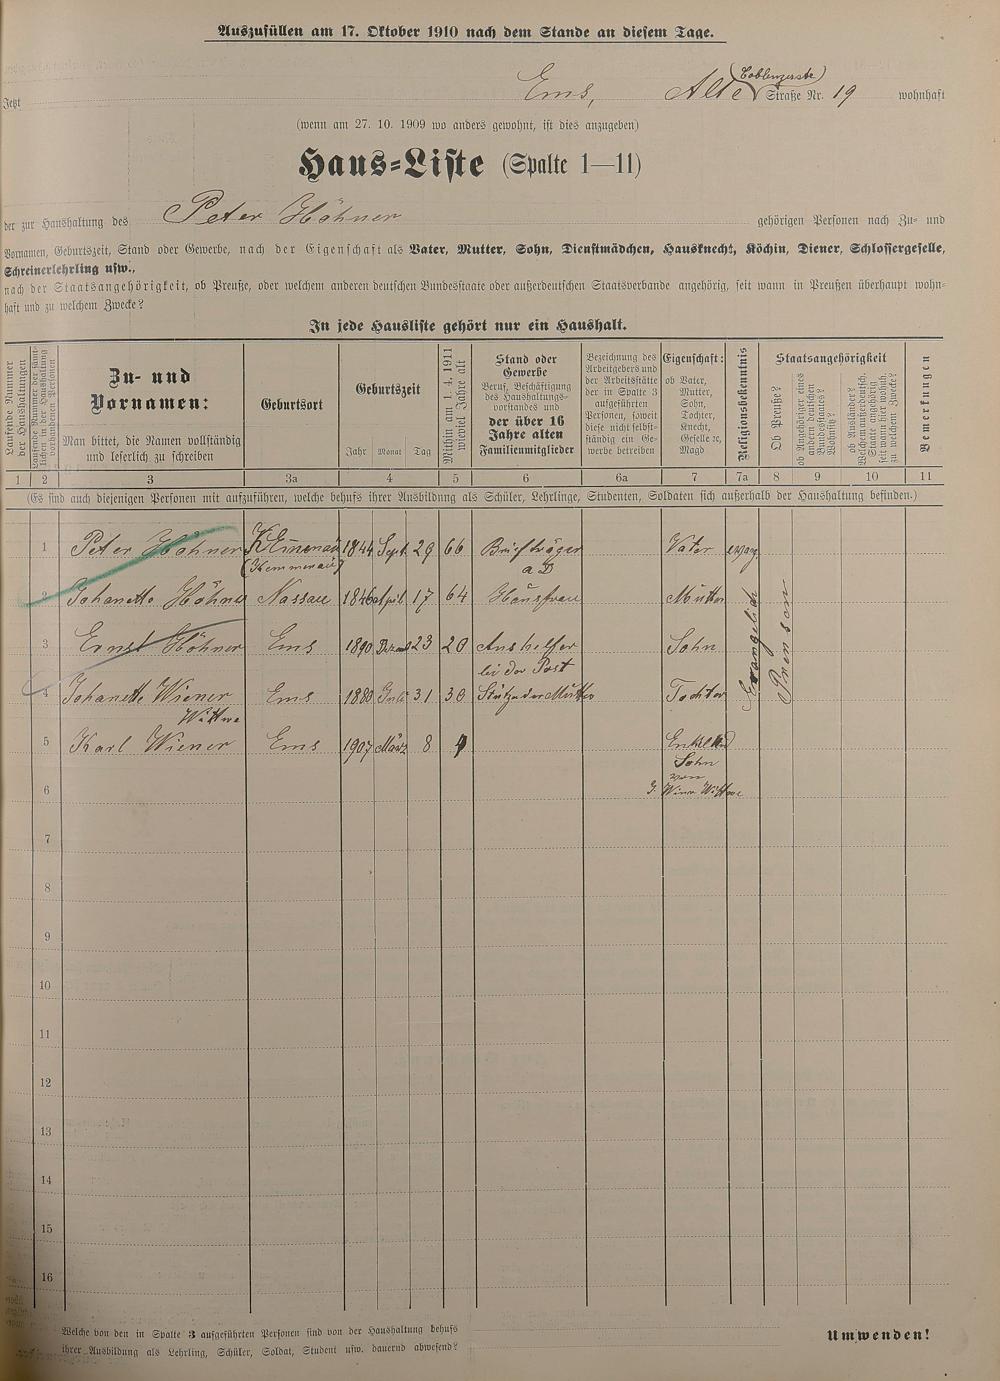 Auszufüllen am 17. Oktober 1910 nach dem Stande an diesem Tage.
(Coblenzerstr)
Jetzt Ems, Alte Straße Nr. 19 wohnhaft
(wenn am 27. 10. 1909 wo anders gewohnt, ist dies anzugeben)
Haus=Liste (Spalte 1—11)
der zur Haushaltung des Peter Höhner gehörigen Personen nach Zu- und
Vornamen, Geburtszeit, Stand oder Gewerbe, nach der Eigenschaft als Vater, Mutter, Sohn, Dienstmädchen, Hausknecht, Köchin, Diener, Schlossergeselle,
Schreinerlehrling usw.,
nach der Staatsangehörigkeit, ob Preuße, oder welchem anderen deutschen Bundesstaate oder außerdeutschen Staatsverbande angehörig, seit wann in Preußen überhaupt wohn-
haft und zu welchem Zwecke?
In jede Hausliste gehört nur ein Haushalt.
Laufende Nummer
der Haushaltungen
Laufende Nummer der sämt-
lichen in der Haushaltung
vorhandenen Personen
Zu- und
Vornamen:
Man bittet, die Namen vollständig
und leserlich zu schreiben
Geburtsort
Geburtszeit
Jahr Monat Tag
Mithin am 1. 4. 1911
wieviel Jahre alt
Stand oder
Gewerbe
Beruf, Beschäftigung
des Haushaltungs-
vorstandes und
der über 16
Jahre alten
Familienmitglieder
Bezeichnung des
Arbeitgebers und
der Arbeitsstätte
der in Spalte 3
aufgeführten
Personen, soweit
diese nicht selbst-
ständig ein Ge-
werbe betreiben
Eigenschaft:
ob Vater,
Mutter,
Sohn,
Tochter,
Knecht,
Geselle ꝛc,
Magd
Religionsbekenntnis
Staatsangehörigkeit
Ob Preuße?
ob Angehöriger eines
andern deutschen
Bundesstaates?
Welches?
ob Ausländer?
Welchem außerdeutsch.
Staate angehörig
seit wann hier wohnh.
zu welchem Zwecke?
Bemerkungen
1 2 3 3a 4 5 6 6a 7 7a 8 9 10 11
(Es sind auch diejenigen Personen mit aufzuführen, welche behufs ihrer Ausbildung als Schüler, Lehrlinge, Studenten, Soldaten sich außerhalb der Haushaltung befinden.)
1 Peter Höhner 1844 Sept. 29 66 Briefträger Vater evang
(Kemmenau) a D
2 Johanette Höhner Nassau 1846 April 17 64 Hausfrau Mutter
3 Ernst Höhner Ems 1890 23 20 Aushelfer Sohn
bei der Post
4 Johanette Wiener Ems 1880 Juli 31 30 Stütze der Mutter Tochter
Wittwe
Evangelisch
5 Karl Wiener Ems 1907 März 8 Enkel
Sohn
von
6 J. Wiener Wittwe
7
8
9
10
11
12
13
14
15
16
Welche von den in Spalte 3 aufgeführten Personen sind von der Haushaltung behufs
ihrer Ausbildung als Lehrling, Schüler, Soldat, Student usw. dauernd abwesend?
Umwenden!